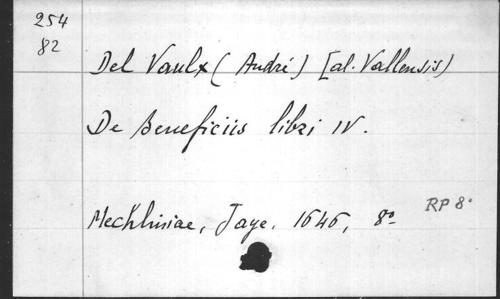 254
82
Del Vaulx (André) [al. Vallensis)
De Beneficiis libri IV.
Mechliniae, Jaye. 1646, 8º
RP 8º